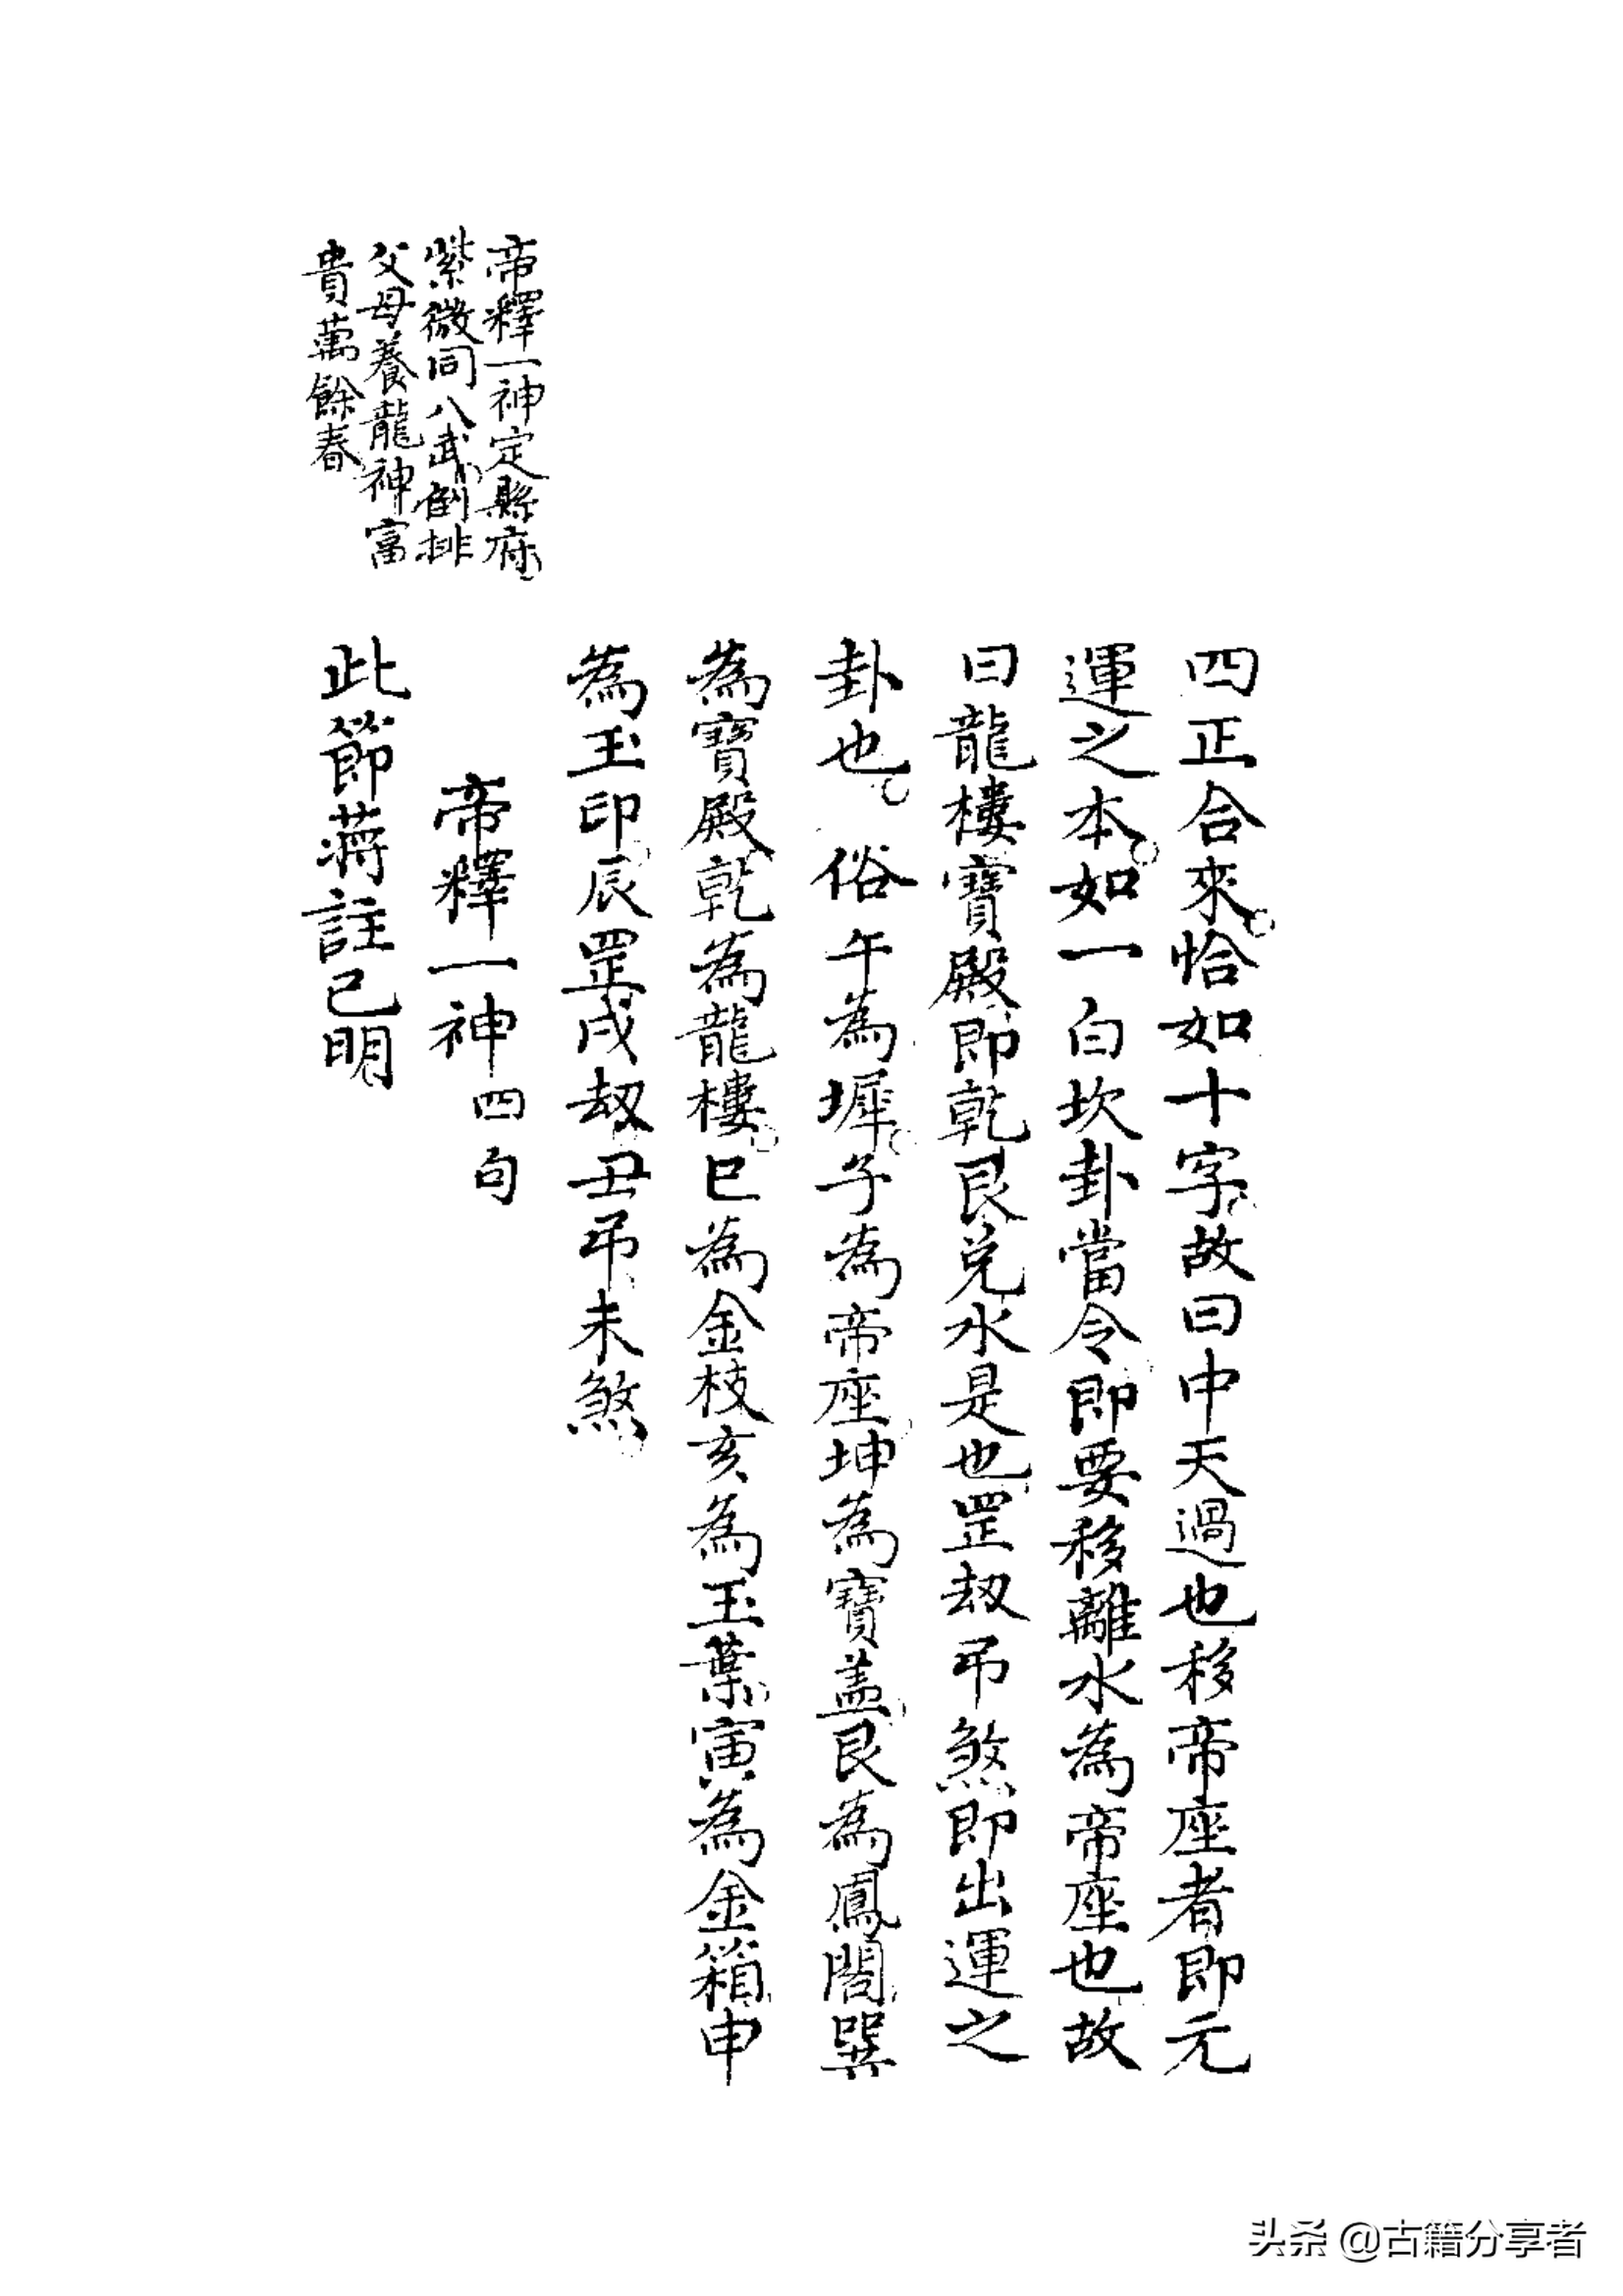 四正合來恰如十字故曰中天過也移帝座者即元
運之本如一白坎卦當令即要移離水為帝座也故
曰龍樓寶殿即乾艮兌水是也罡刼吊煞即出運之
卦也俗午為墀子為帝座坤為寶盖艮為鳳閣巽
為寶殿乾為龍樓巳為金枝亥為玉葉寅為金箱申
為玉印辰罡戌刼丑弔未煞
帝釋一神定縣府
紫微同八武倒排
父母養龍神富
貴萬餘春
帝釋一神四句
此節蔣註已明
头条 @古籍分享者